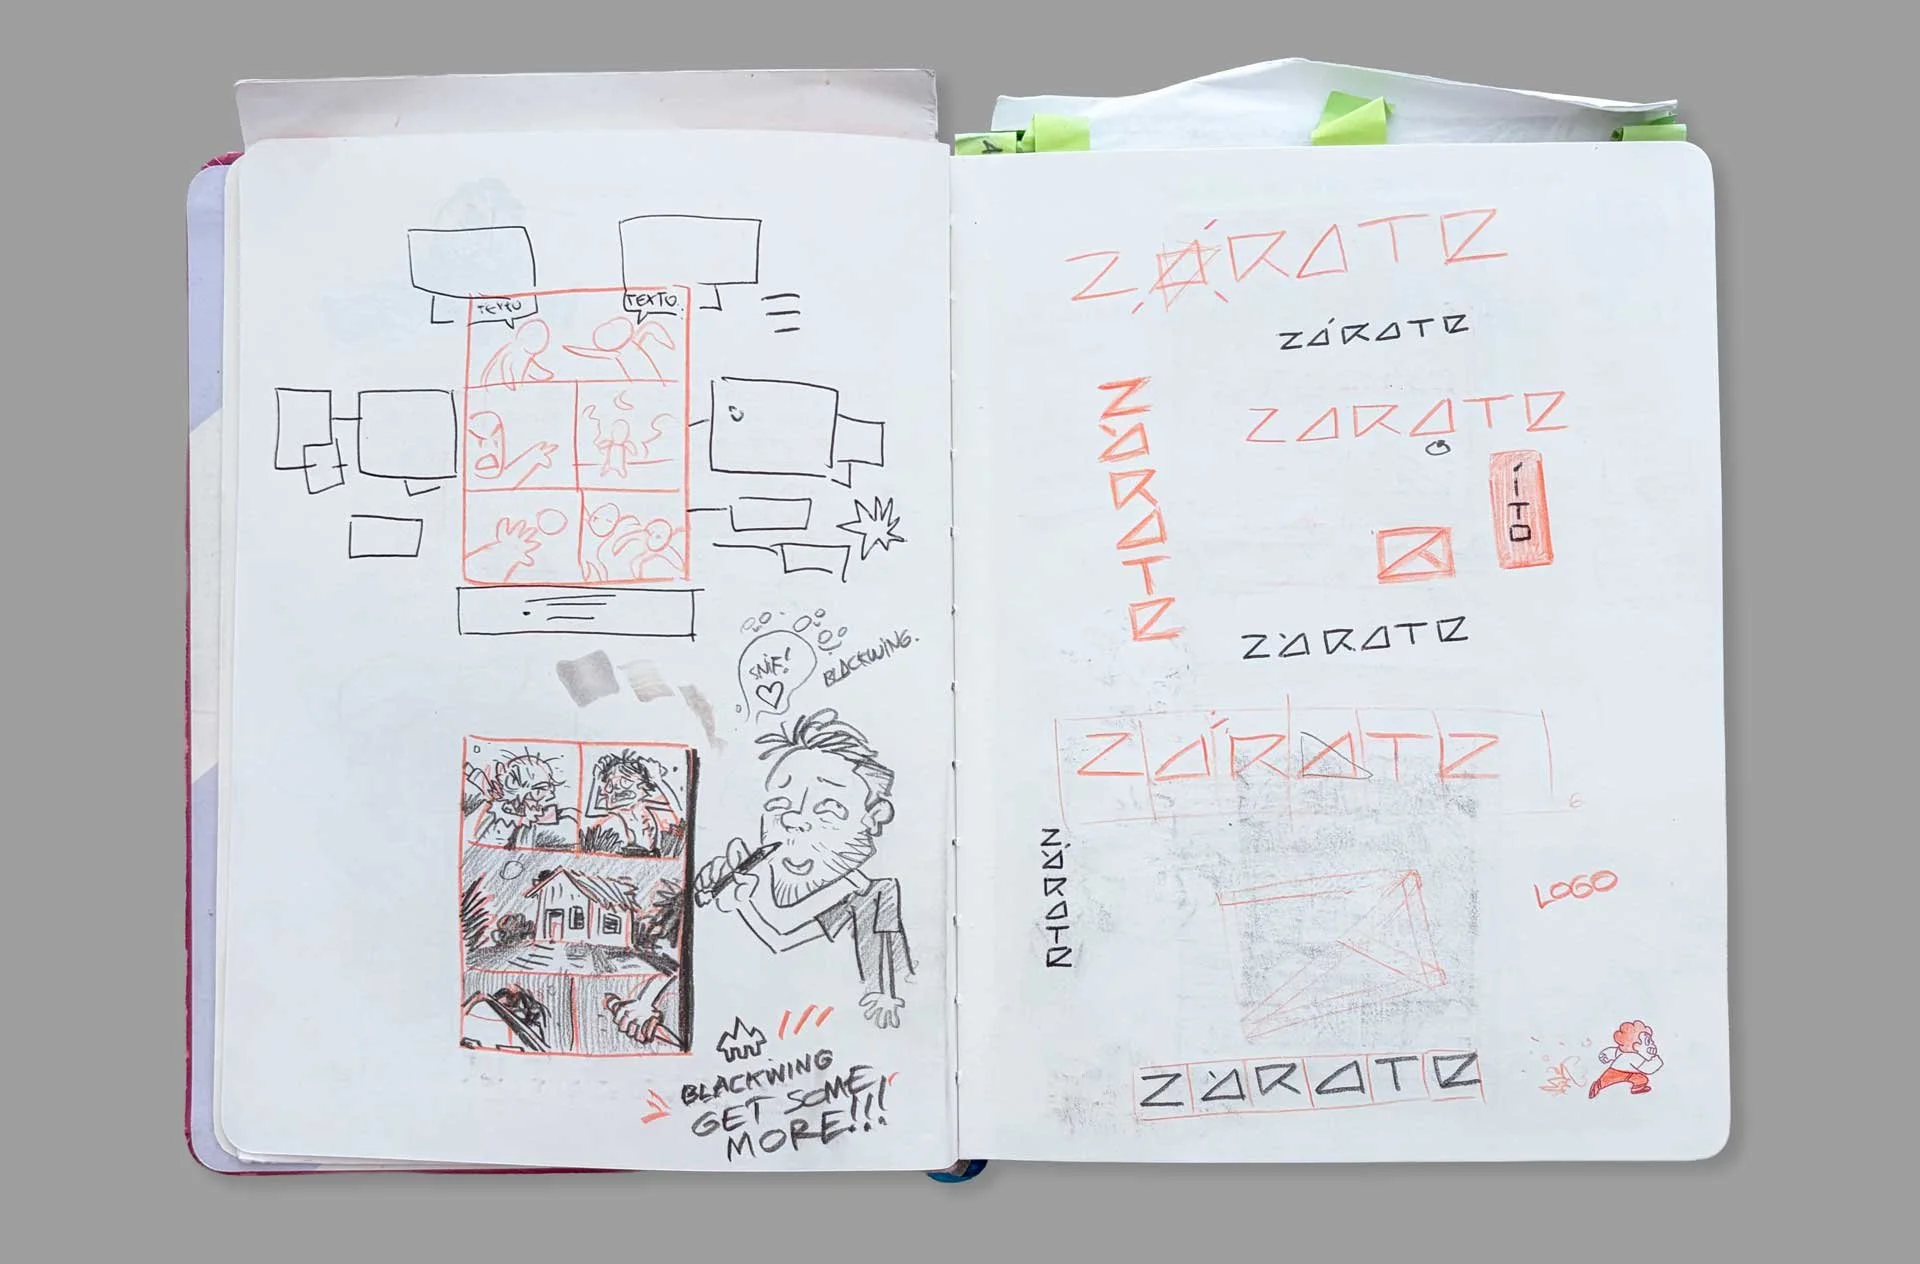 TEXTO
TEXTO
SNIF!
BLACKWING.
BLACKWING
GET SOME
MORE!!!
ZÁRATE
ZÁRATE
ZÁRATE
ZARATE
ÍTO
ZÁRATE
ZÁRATE
ZÁRATE
LOGO
ZÁRATE